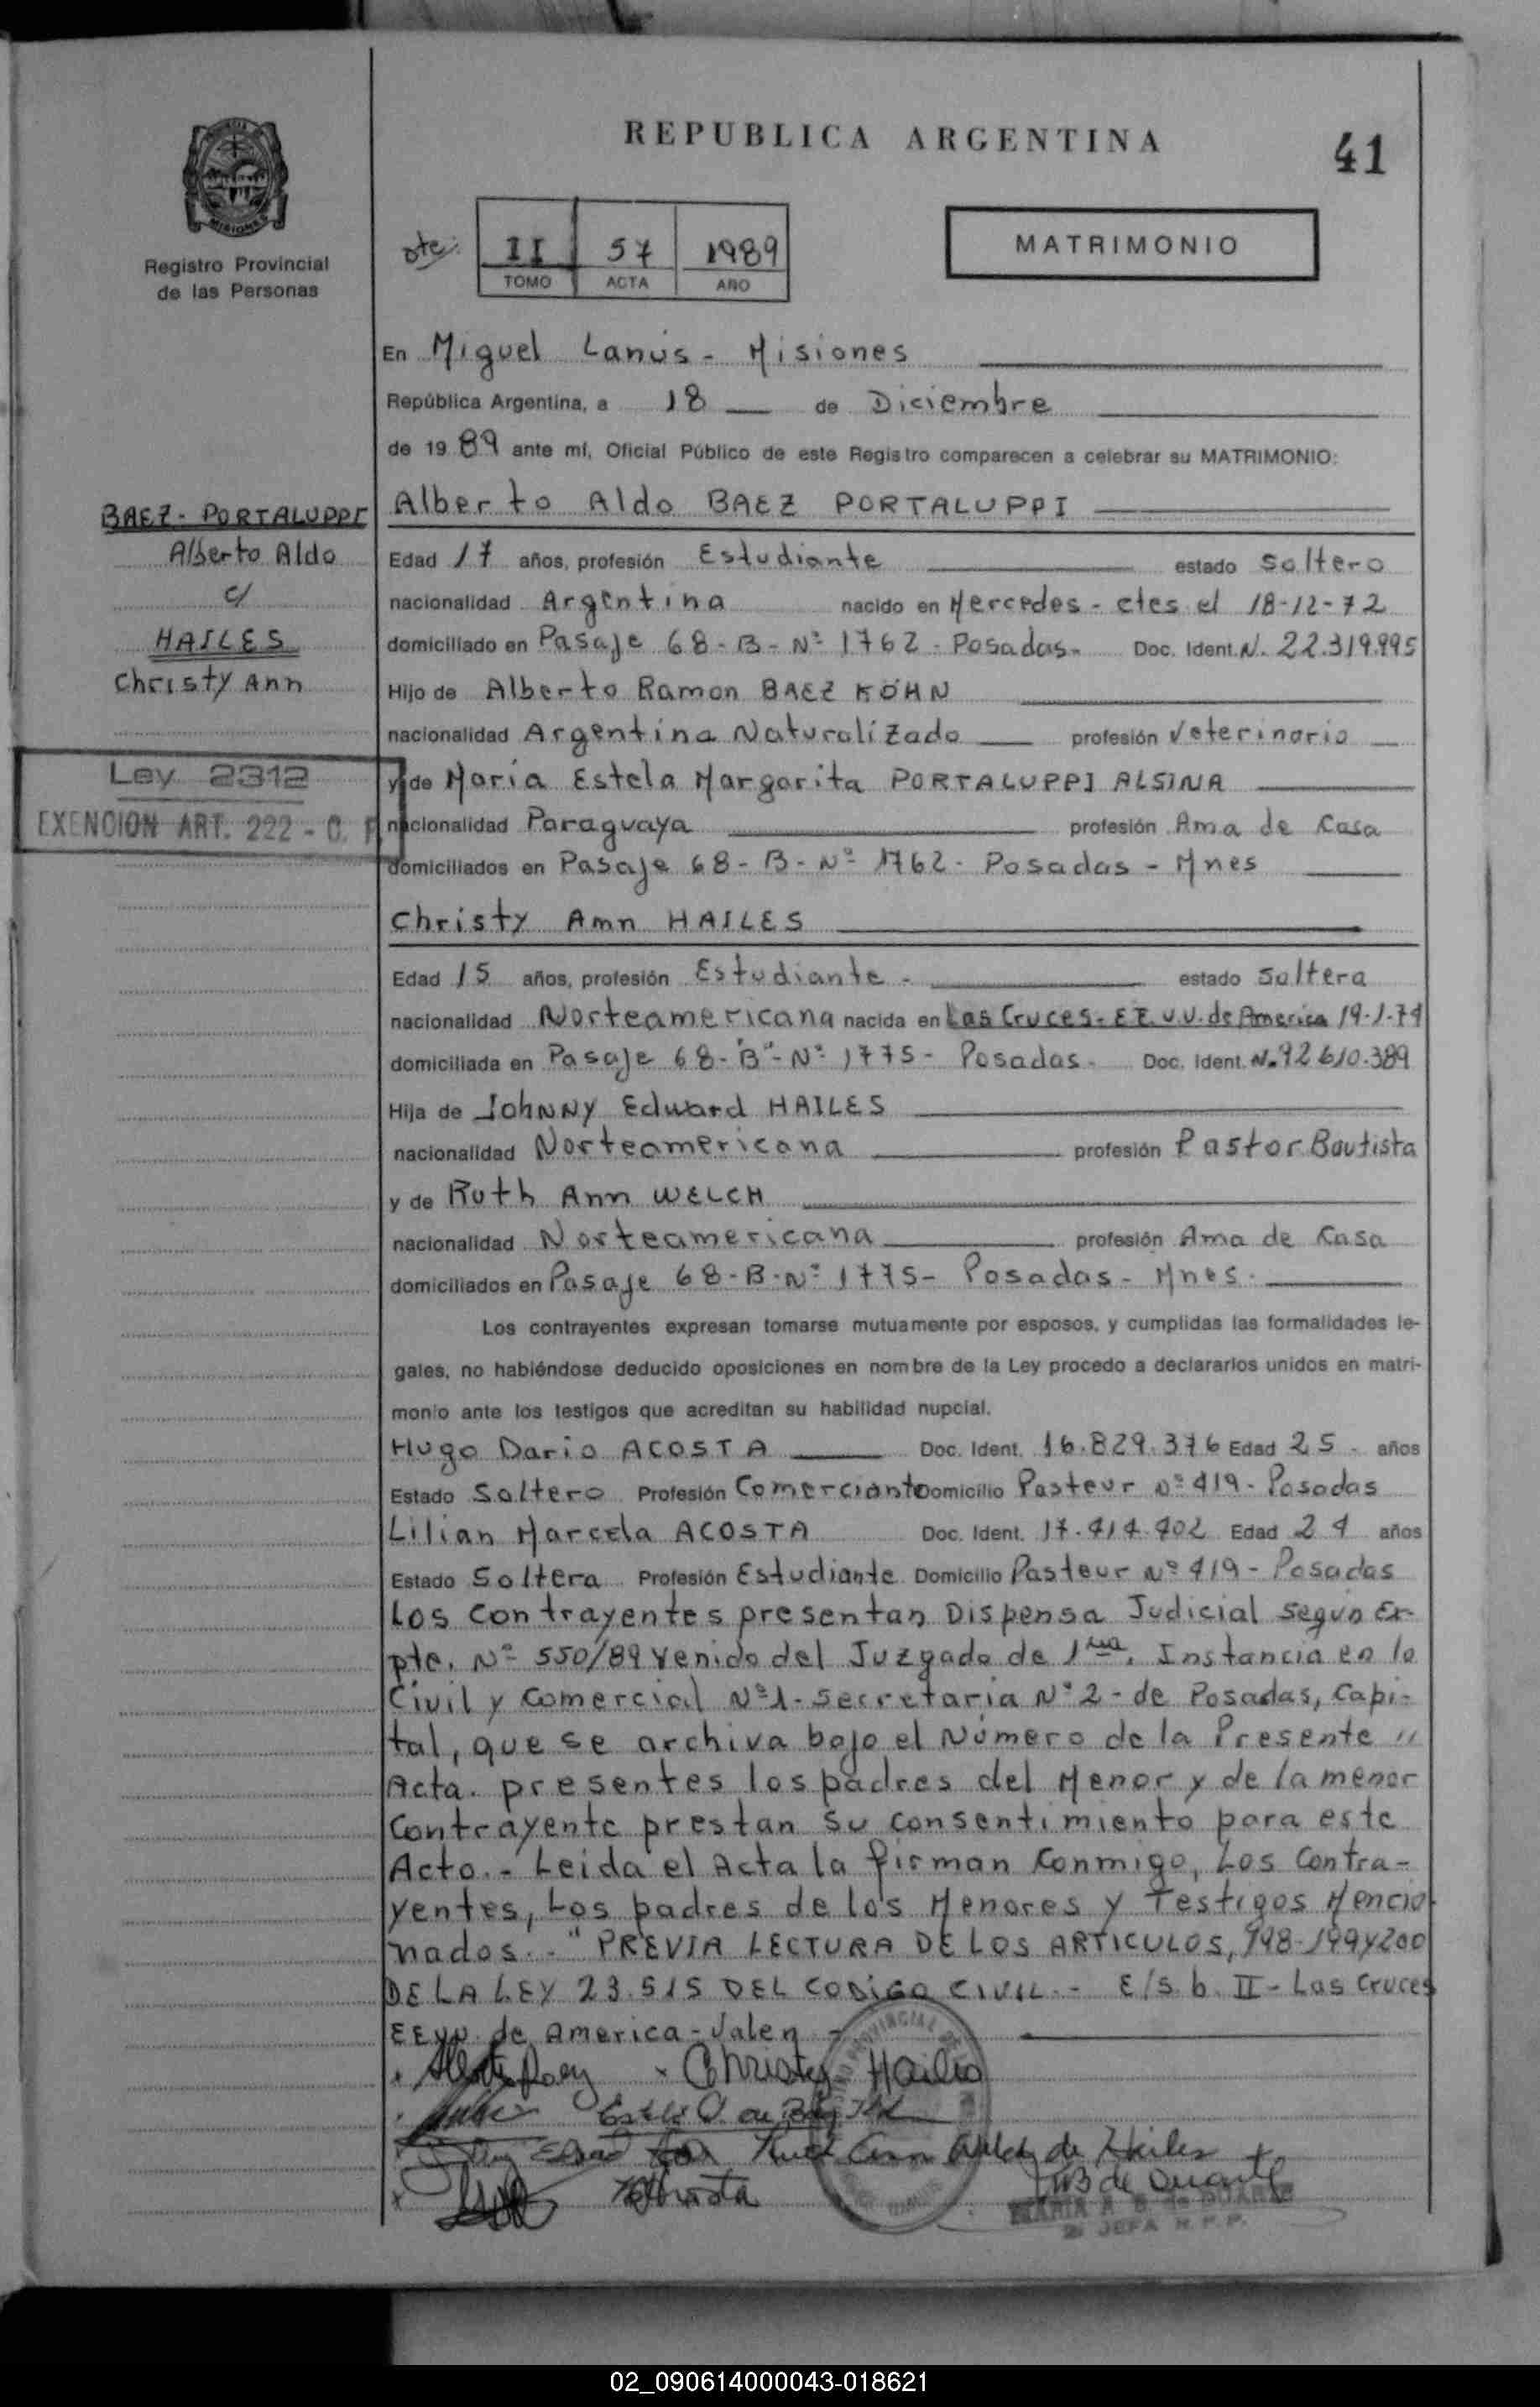 REPUBLICA ARGENTINA
41
MISIONES
Registro Provincial
de las Personas
dte.
II 57 1989
TOMO ACTA AÑO
MATRIMONIO
En Miguel Lanús - Misiones
República Argentina, a 18 de Diciembre
de 1989 ante mí, Oficial Público de este Registro comparecen a celebrar su MATRIMONIO:
BAEZ - PORTALUPPI
Alberto Aldo
c/
HAILES
Christy Ann
Ley 2312
EXENCION ART. 222 - C. F
Alberto Aldo BAEZ PORTALUPPI
Edad 17 años, profesión Estudiante estado Soltero
nacionalidad Argentina nacido en Mercedes - ctes el 18-12-72
domiciliado en Pasaje 68 - B - Nº 1762 - Posadas - Doc. Ident. N. 22.319.995
Hijo de Alberto Ramon BAEZ KÖHN
nacionalidad Argentina Naturalizado profesión Veterinario
y de María Estela Margarita PORTALUPPI ALSINA
nacionalidad Paraguaya profesión Ama de Casa
domiciliados en Pasaje 68 - B - Nº 1762 - Posadas - Mnes
Christy Ann HAILES
Edad 15 años, profesión Estudiante - estado Soltera
nacionalidad Norteamericana nacida en Las Cruces - EE.U.U. de America 19-1-74
domiciliada en Pasaje 68 - "B" - Nº 1775 - Posadas - Doc. Ident. N. 92 610.389
Hija de Johnny Edward HAILES
nacionalidad Norteamericana profesión Pastor Bautista
y de Ruth Ann WELCH
nacionalidad Norteamericana profesión Ama de Casa
domiciliados en Pasaje 68 - B - Nº 1775 - Posadas - Mnes.
Los contrayentes expresan tomarse mutuamente por esposos, y cumplidas las formalidades le-
gales, no habiéndose deducido oposiciones en nombre de la Ley procedo a declararlos unidos en matri-
monio ante los testigos que acreditan su habilidad nupcial.
Hugo Dario ACOSTA Doc. Ident. 16.829.376 Edad 25 - años
Estado Soltero Profesión Comerciante Domicilio Pasteur Nº 419 - Posadas
Lilian Marcela ACOSTA Doc. Ident. 17.414.402 Edad 24 años
Estado Soltera Profesión Estudiante Domicilio Pasteur Nº 419 - Posadas
Los Contrayentes presentan Dispensa Judicial segun Ex-
pte. Nº 550/89 venido del Juzgado de 1ra. Instancia en lo
Civil y Comercial Nº 1 - Secretaria Nº 2 - de Posadas, Capi-
tal, que se archiva bajo el Número de la Presente "
Acta. presentes los padres del Menor y de la menor
Contrayente prestan su consentimiento para este
Acto. - Leida el Acta la firman Conmigo, Los Contra-
yentes, Los padres de los Menores y Testigos Mencio-
nados. - "PREVIA LECTURA DE LOS ARTICULOS, 198-199 y 200
DE LA LEY 23.515 DEL CODIGO CIVIL. - E/s. b. II - Las Cruces
EEUU. de America - Valen -
Christy Hailes
Ruth Ann Welch de Hailes
MB de Duarte
MARIA A. B. de DUARTE
JEFA R. P. P.
02_090614000043-018621